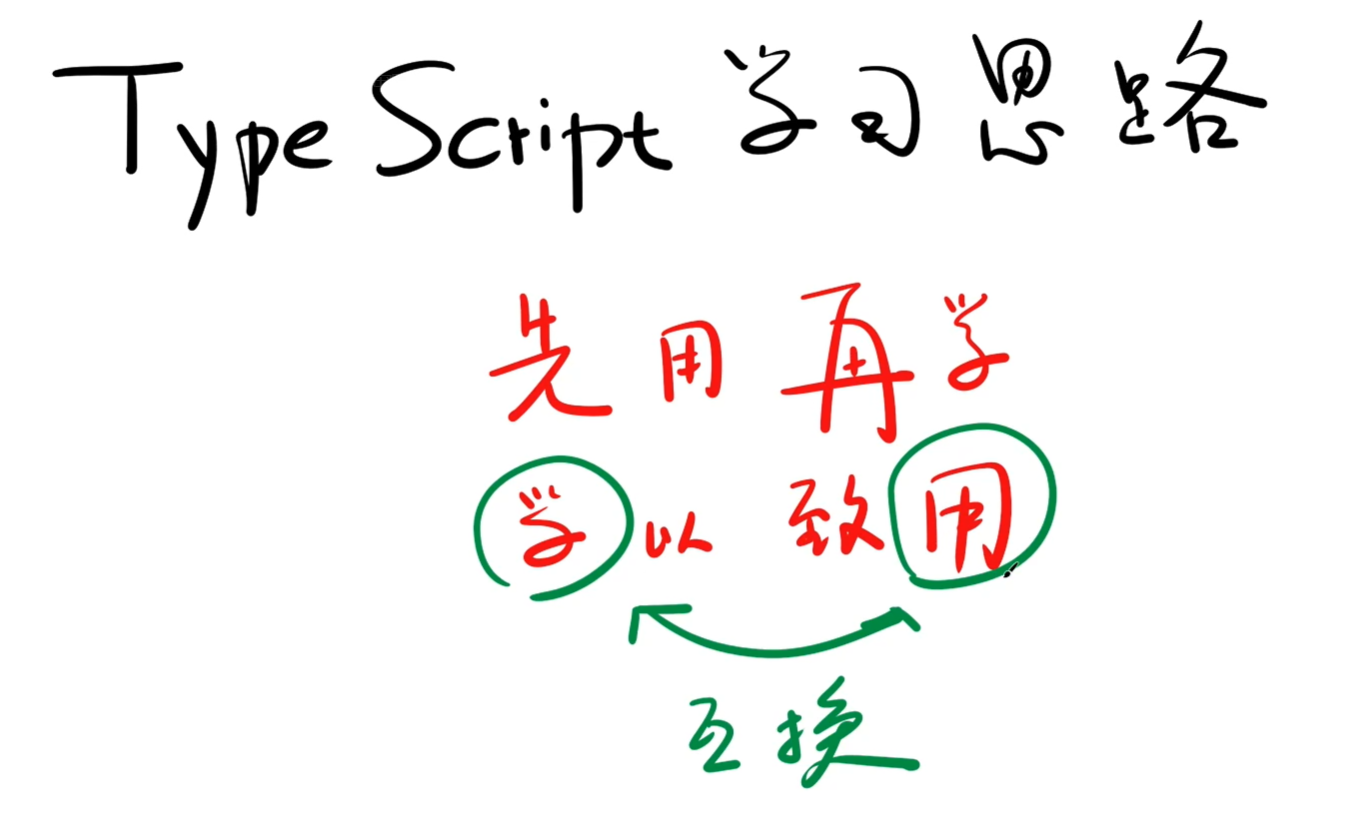 TypeScript 学习思路
先用再学
学以致用
互换